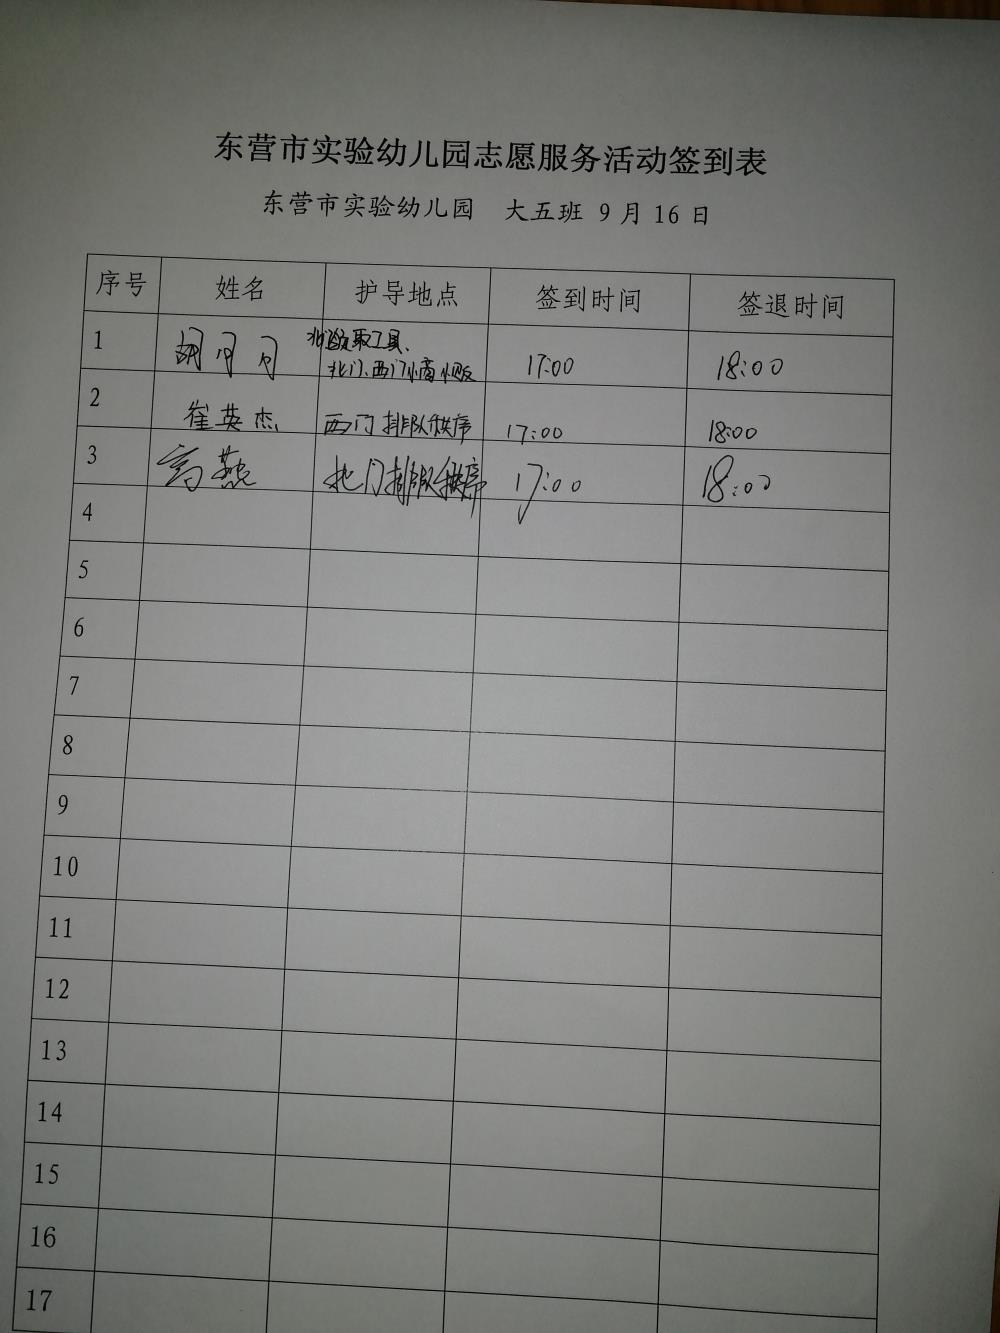 东营市实验幼儿园志愿服务活动签到表
东营市实验幼儿园 大五班 9 月 16 日
序号 姓名 护导地点 签到时间 签退时间
1 胡月月 取工具、
北门、西门小商小贩 17:00 18:00
2 崔英杰 西门排队秩序 17:00 18:00
3 高燕 北门排队秩序 17:00 18:00
4
5
6
7
8
9
10
11
12
13
14
15
16
17